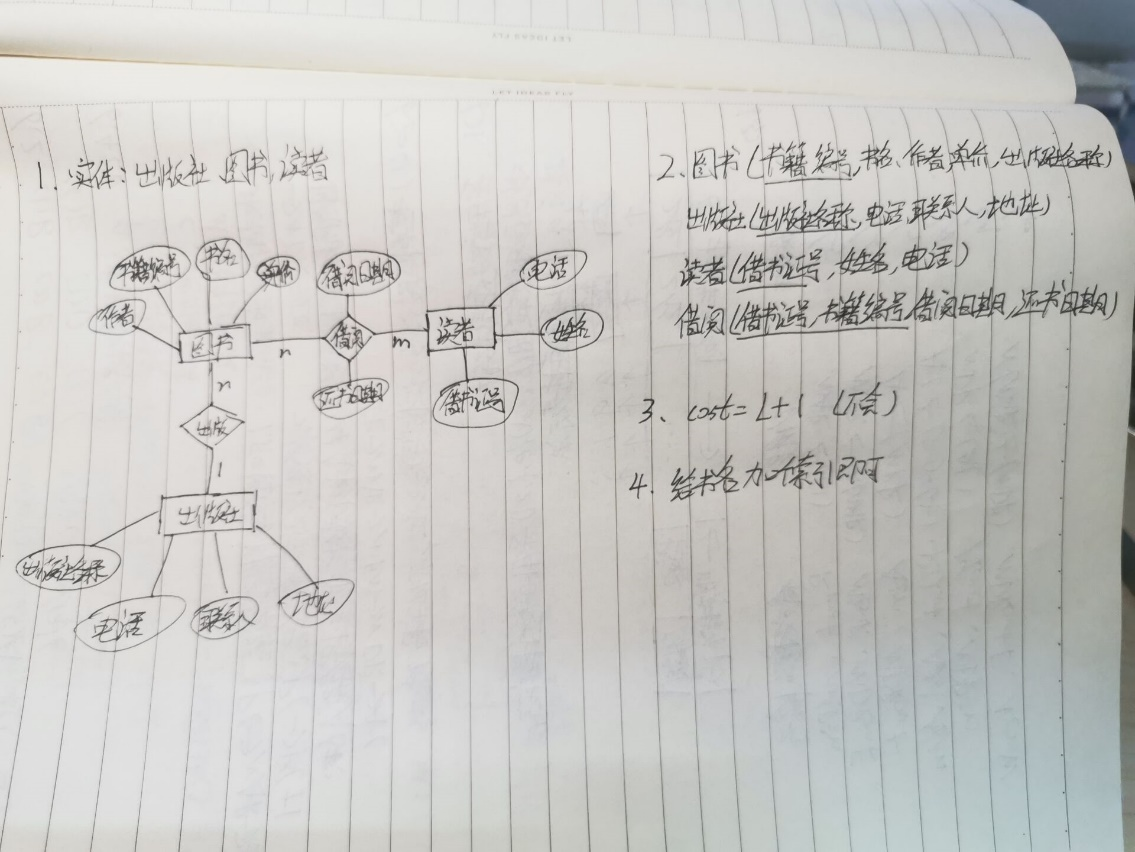 1. 实体：出版社 图书，读者
书籍编号
书名
单价
作者
图书
n
借阅日期
借阅
还书日期
m
读者
电话
姓名
借书证号
n
出版
1
出版社
出版社名称
电话
联系人
地址
2、图书（书籍编号，书名、作者，单价，出版社名称）
出版社（出版社名称、电话，联系人，地址）
读者（借书证号，姓名，电话）
借阅（借书证号，书籍编号，借阅日期，还书日期）
3、cost=L+1 （不会）
4. 给书名加个索引即可